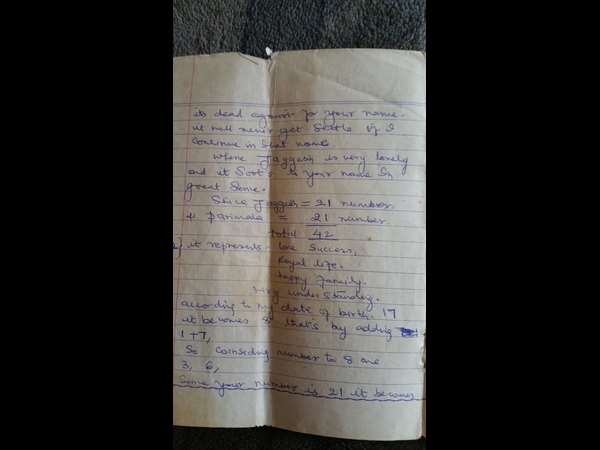 its dead again for your name.
it will never get Settle if I
Continue in that name
where Jaggesh is very lovely
and it Sorts to your name in
great Some.
Since Jaggesh = 21 number
& parimala = 21 number
total 42
it represents love Success,
Royal life.
happy family.
understanding.
according to my date of birth 17
it becomes 8 that's by adding
1+7,
So coinsiding number to 8 are
3, 6,
Some your number is 21 it becomes